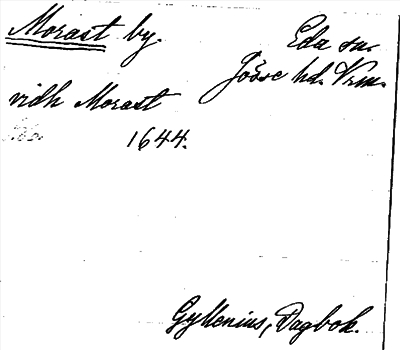 Morast by.
Eda sn.
Jösse hd. Vrm.
vidh Morast
1644.
Gyllenius, Dagbok.